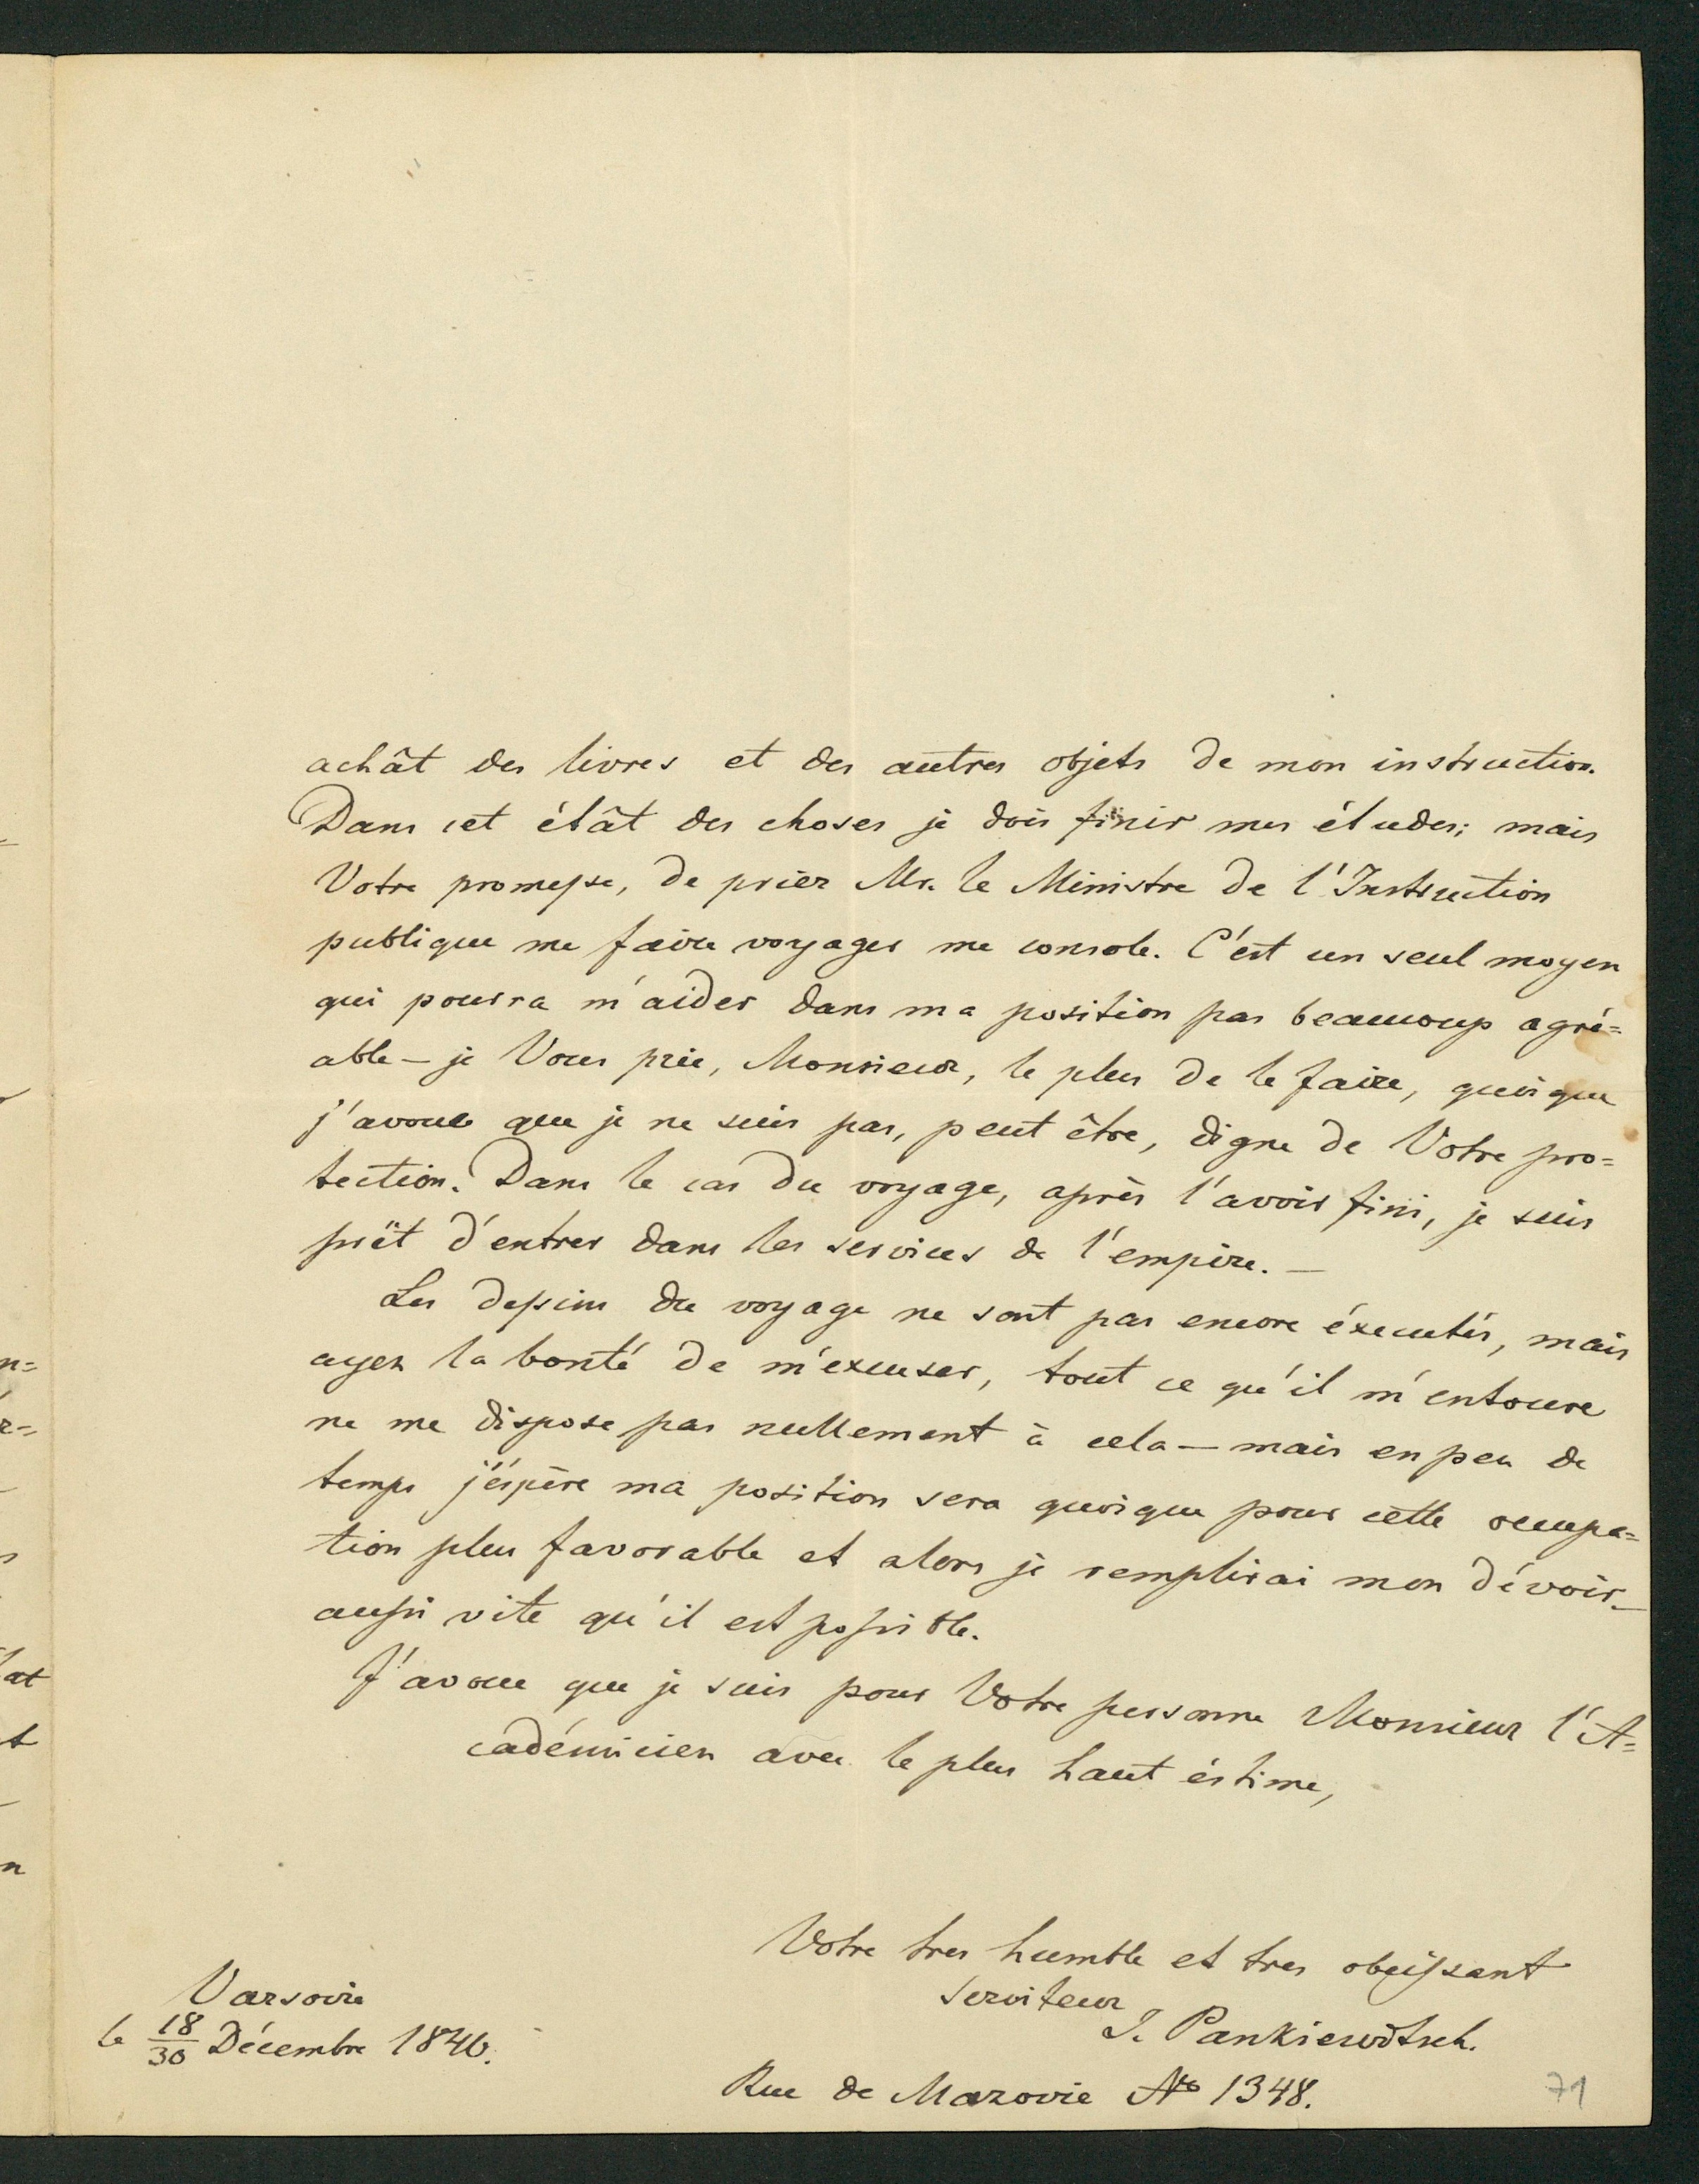 achât des livres et des autres objets de mon instruction.
Dans cet étât des choses je dois finir mes études; mais
Votre promesse, de prier Mr. le Ministre de l'Instruction
publique me faire voyager me console. C'est un seul moyen
qui pourra m'aider dans ma position pas beaucoup agré=
able — je Vous prie, Monsieur, le plus de le faire, quoique
j'avoue que je ne suis pas, peut être, digne de Votre pro=
tection. Dans le cas du voyage, après l'avoir fini, je suis
prêt d'entrer dans les services de l'empire. —
Les dessins du voyage ne sont pas encore éxecutés, mais
ayez la bonté de m'excuser, tout ce qu'il m'entoure
ne me dispose pas nullement à cela — mais en peu de
temps j'éspère ma position sera quoique pour cette occupa=
tion plus favorable et alors je remplirai mon dévoir —
aussi vite qu'il est possible.
J'avoue que je suis pour Votre personne Monsieur l'A=
cadémicien avec le plus haut éstime,
Votre tres humble et tres obeissant
serviteur
J. Pankiewitsch.
Varsovie
le 18/30 Décembre 1846.
Rue de Mazovie No 1348.
71
at
t
n
n=